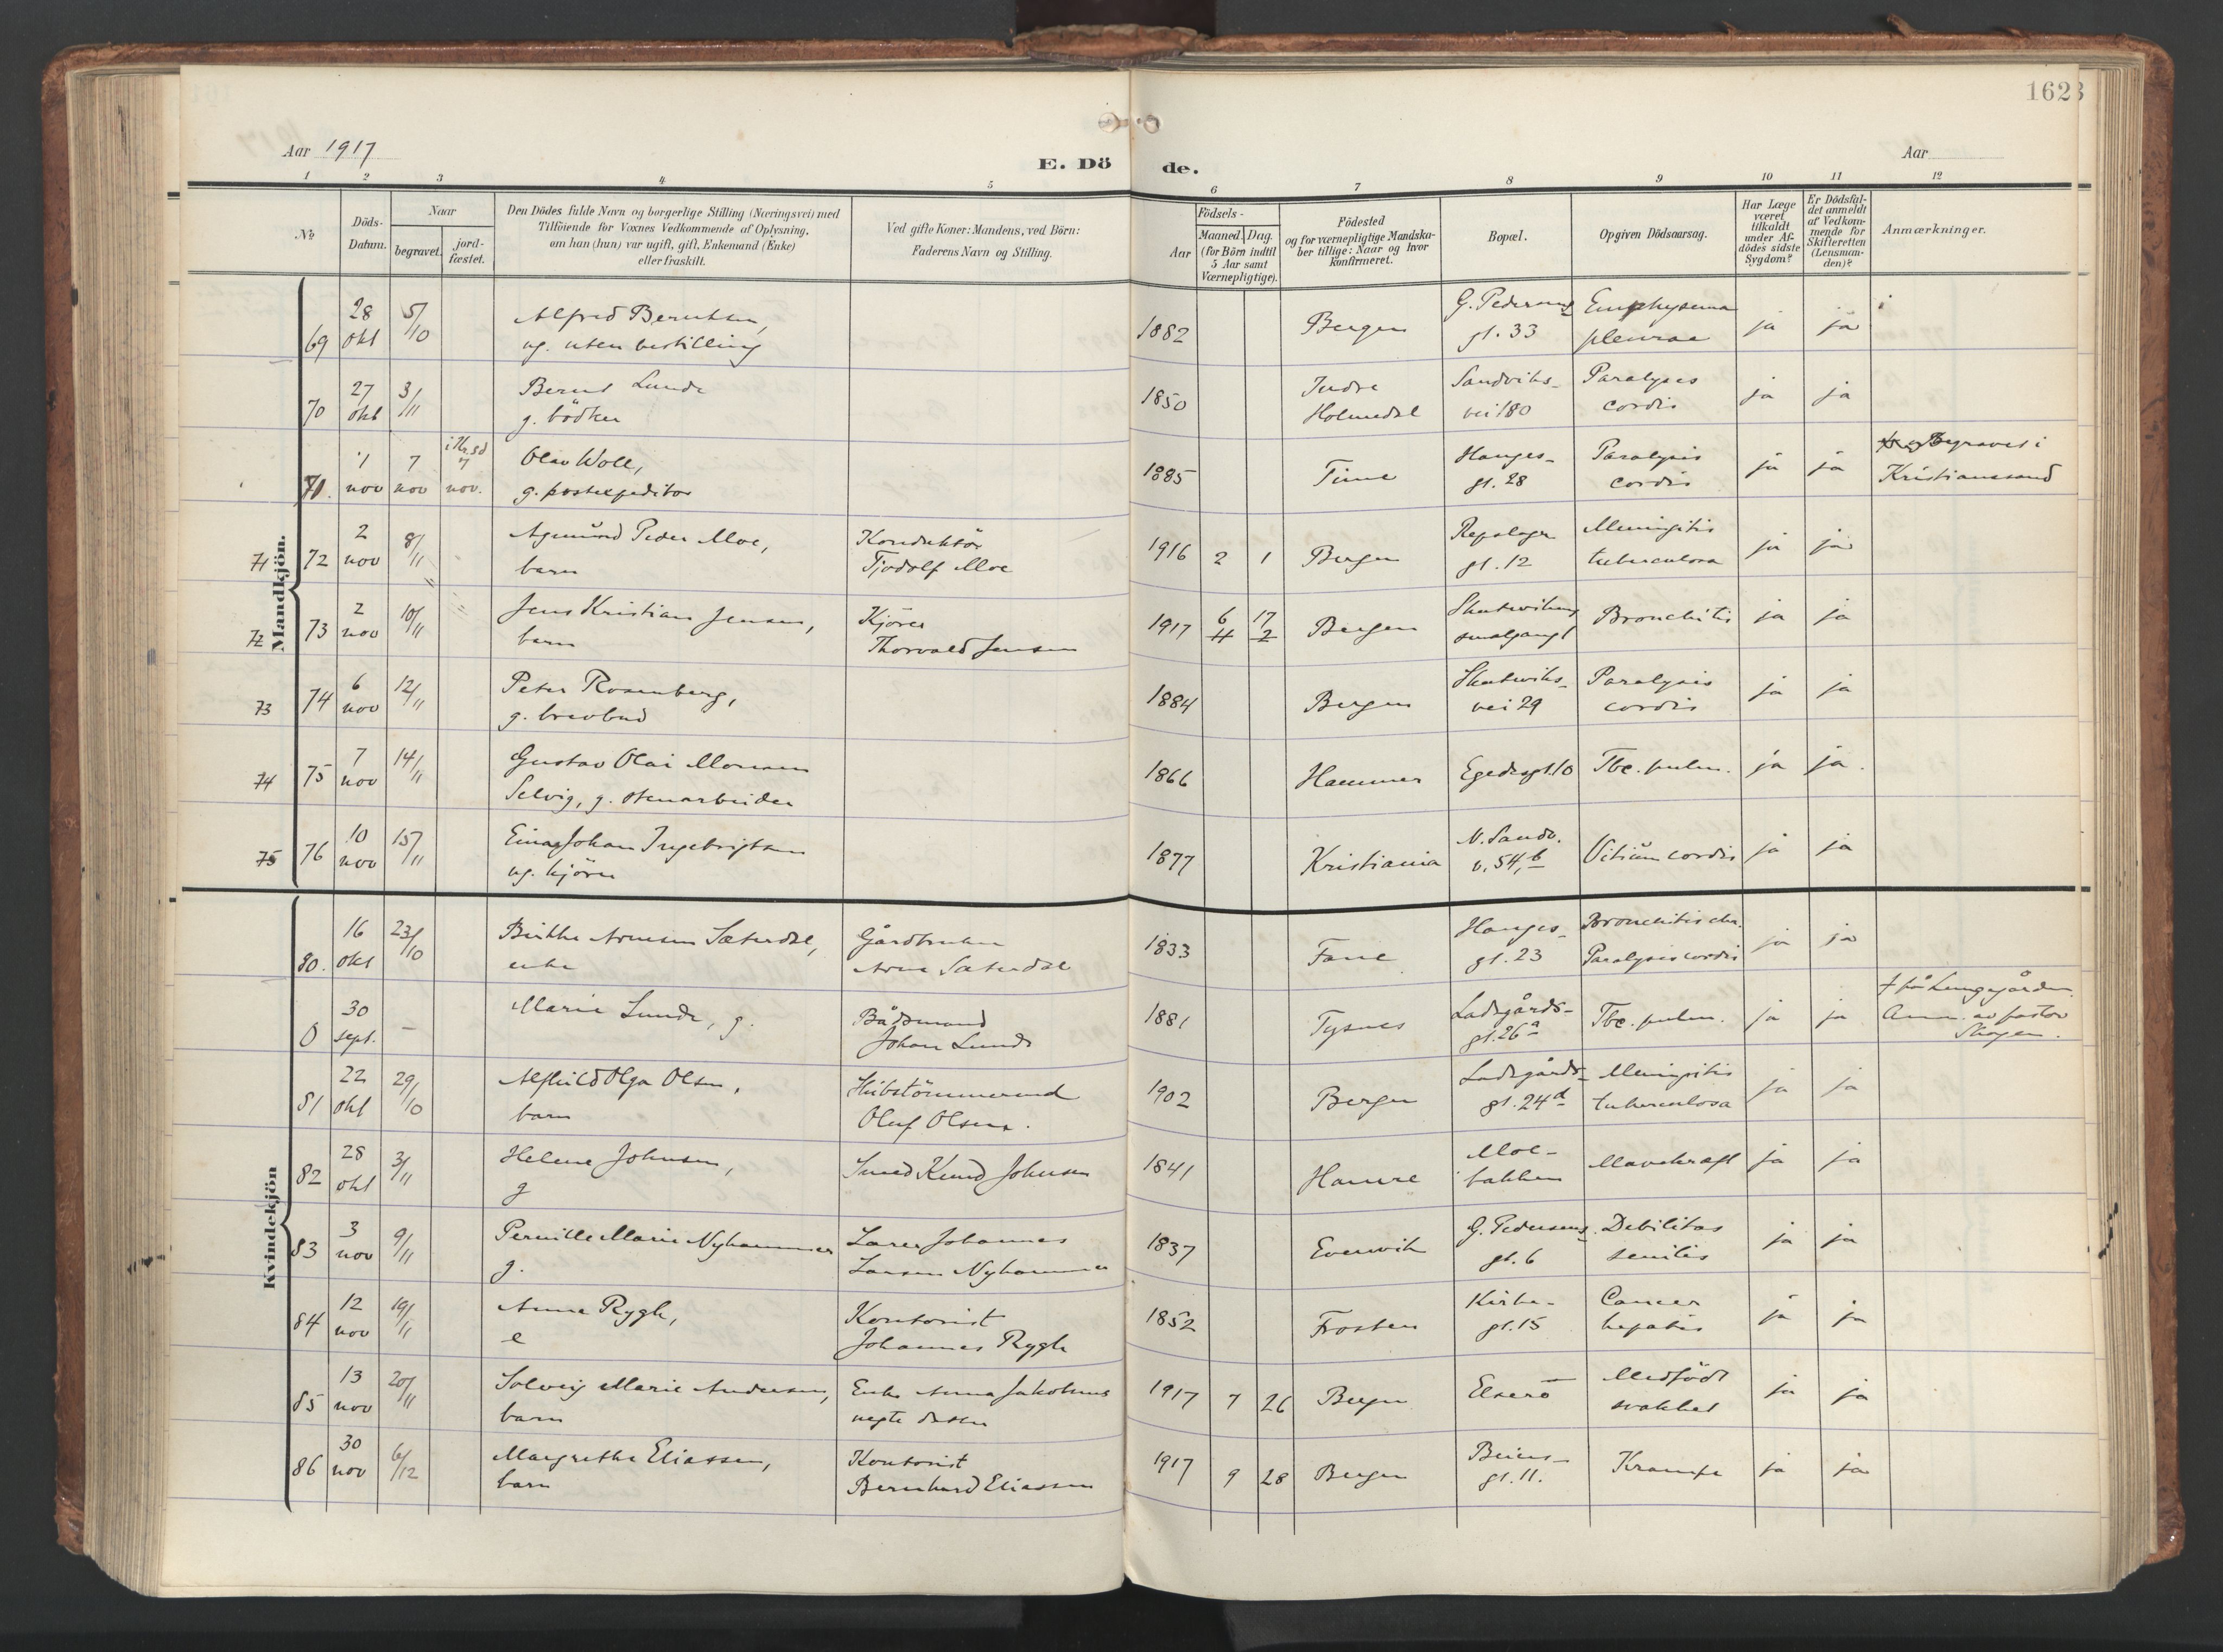 1623
Aar 1917
E. Dö de.
Aar
1 2 3 4 5 6 7 8 9 10 11 12
No
Döds-Datum.
Naar
begravet.
jord-fæstet.
Den Dödes fulde Navn og borgerlige Stilling (Næringsvei) med
Tilföiende for Voxnes Vedkommende af Oplysning,
om han (hun) var ugift, gift, Enkemand (Enke)
eller fraskilt.
Ved gifte Koner: Mandens, ved Börn:
Faderens Navn og Stilling.
Födsels-
Aar
Maaned. Dag.
(for Börn indtil
5 Aar samt
Værnepligtige).
Födested
og for værnepligtige Mandska-
ber tillige: Naar og hvor
konfirmeret.
Bopæl.
Opgiven Dödsaarsag.
Har Læge
været
tilkaldt
under Af-
dödes sidste
Sygdom?
Er Dödsfal-
det anmeldt
af Vedkom-
mende for
Skifteretten
(Lensman-
den)?
Anmærkninger.
Mandkjön.
69 28 okt 5/10 Alfred Berntsen, 1882 Bergen G. Pedersens gt. 33 Emphysema pleurae ja ja
ug. uten bestilling
70 27 okt 3/11 Bernt Lunde 1850 Indre Holmedal Sandviks-vei 180 Paralysis cordis ja ja
g. bödker
71. 1 nov 7 nov i Kr.sd 7 nov. Olav Woll, 1885 Time Hauges-gt. 28 Paralysis cordis ja ja begravet i Kristianssand
g. postexpeditör
71 72 2 nov 8/11 Agmund Peder Moe, Konduktör 1916 2 1 Bergen Repslager gt. 12 Meningitis tuberculosa ja ja
barn Tjodolf Moe
72 73 2 nov 10/11 Jens Kristian Jensen, Kjörer 1917 6 11 17 2 Bergen Skuteviksens smalgangt Bronchitis ja ja
barn Thorvald Jensen
73 74 6 nov 12/11 Peter Rosenberg, 1884 Bergen Skuteviks-vei 29 Paralysis cordis ja ja
g. brevbud
74 75 7 nov 14/11 Gustav Olai Monsen 1866 Hammer Egedesgt. 10 Tbc. pulm. ja ja.
Selvig, g. stenarbeider
75 76 10 nov 15/11 Einar Johan Ingebrigtsen 1877 Kristiania N. Sandv. v. 54, b Vitium cordis ja ja
ug. kjörer
Kvindekjön
80. 16 okt 23/10 Birthe Arnesen Sæterdal, Gårdbruker 1833 Fane Hauges-gt. 23 Bronchitis chr. Paralysis cordis ja ja
enke Arne Sæterdal
0 30 sept. – Marie Lunde, g. Bådsmand 1881 Tysnes Ladegårds-gt. 26a Tbc. pulm. ja ja † på Lungegården.
Johan Lunde Anm. av pastor Skagen.
81 22 okt 29/10 Alfhild Olga Olsen, Skibstömmermand 1902 Bergen Ladegårds-gt. 24d Meningitis tuberculosa ja ja
barn Oluf Olsen.
82 28 okt 3/11 Helene Johnsen, Smed Knud Johnsen 1841 Hamre Moe-bakken Mavekræft ja ja
g
83 3 nov 9/11 Pernille Marie Nyhammer Larer Johannes 1837 Evenvik G. Pedersens gt. 6 Debilitas senilis ja ja
g. Larsen Nyhammer
84 12 nov 19/11 Anna Rygh, Kontorist 1852 Frosten Kirke-gt. 15 Cancer hepatis ja ja
e Johannes Rygh
85 13 nov 20/11 Solveig Marie Andersen, Enke Anna Jakobines 1917 7 26 Bergen Elserö Medfödt svakhet ja ja
barn uegte datter
86 30 nov 6/12 Margrethe Eliassen, Kontorist 1917 9 28 Bergen Beiers-gt. 11. Krampe ja ja
barn Bernhard Eliassen